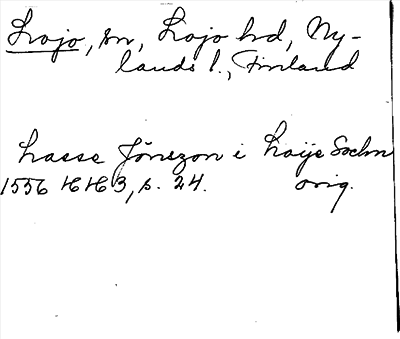 Lojo, sn, Lojo hd, Ny-
lands l., Finland
Lasse Jönszon i Loije Sochn
1556 HH3, s. 24. orig.